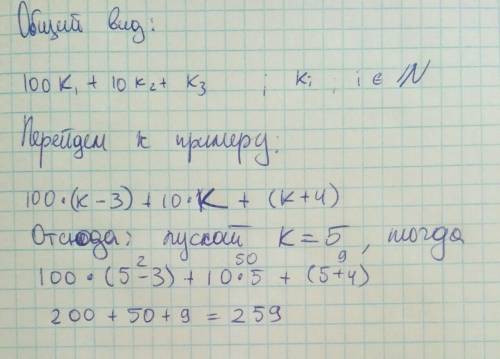 Общий вид:
100K₁ + 10K₂ + K₃ ; Kᵢ, i ∈ ℕ
Перейдем к примеру:
100•(K-3) + 10•K + (K+4)
Отсюда: пускай K=5, тогда
2 50 9
100•(5-3) + 10•5 + (5+4)
200 + 50 + 9 = 259